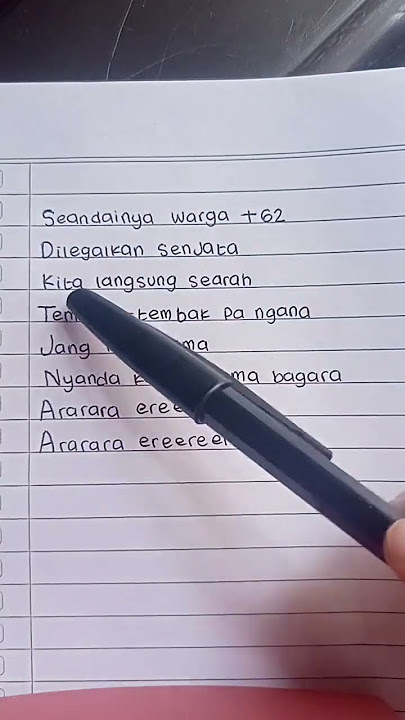 Seandainya warga +62
Dilegalkan senjata
Kita langsung searah
tembak pa ngana
Jang ma
Nyanda ma bagara
Ararara
Ararara